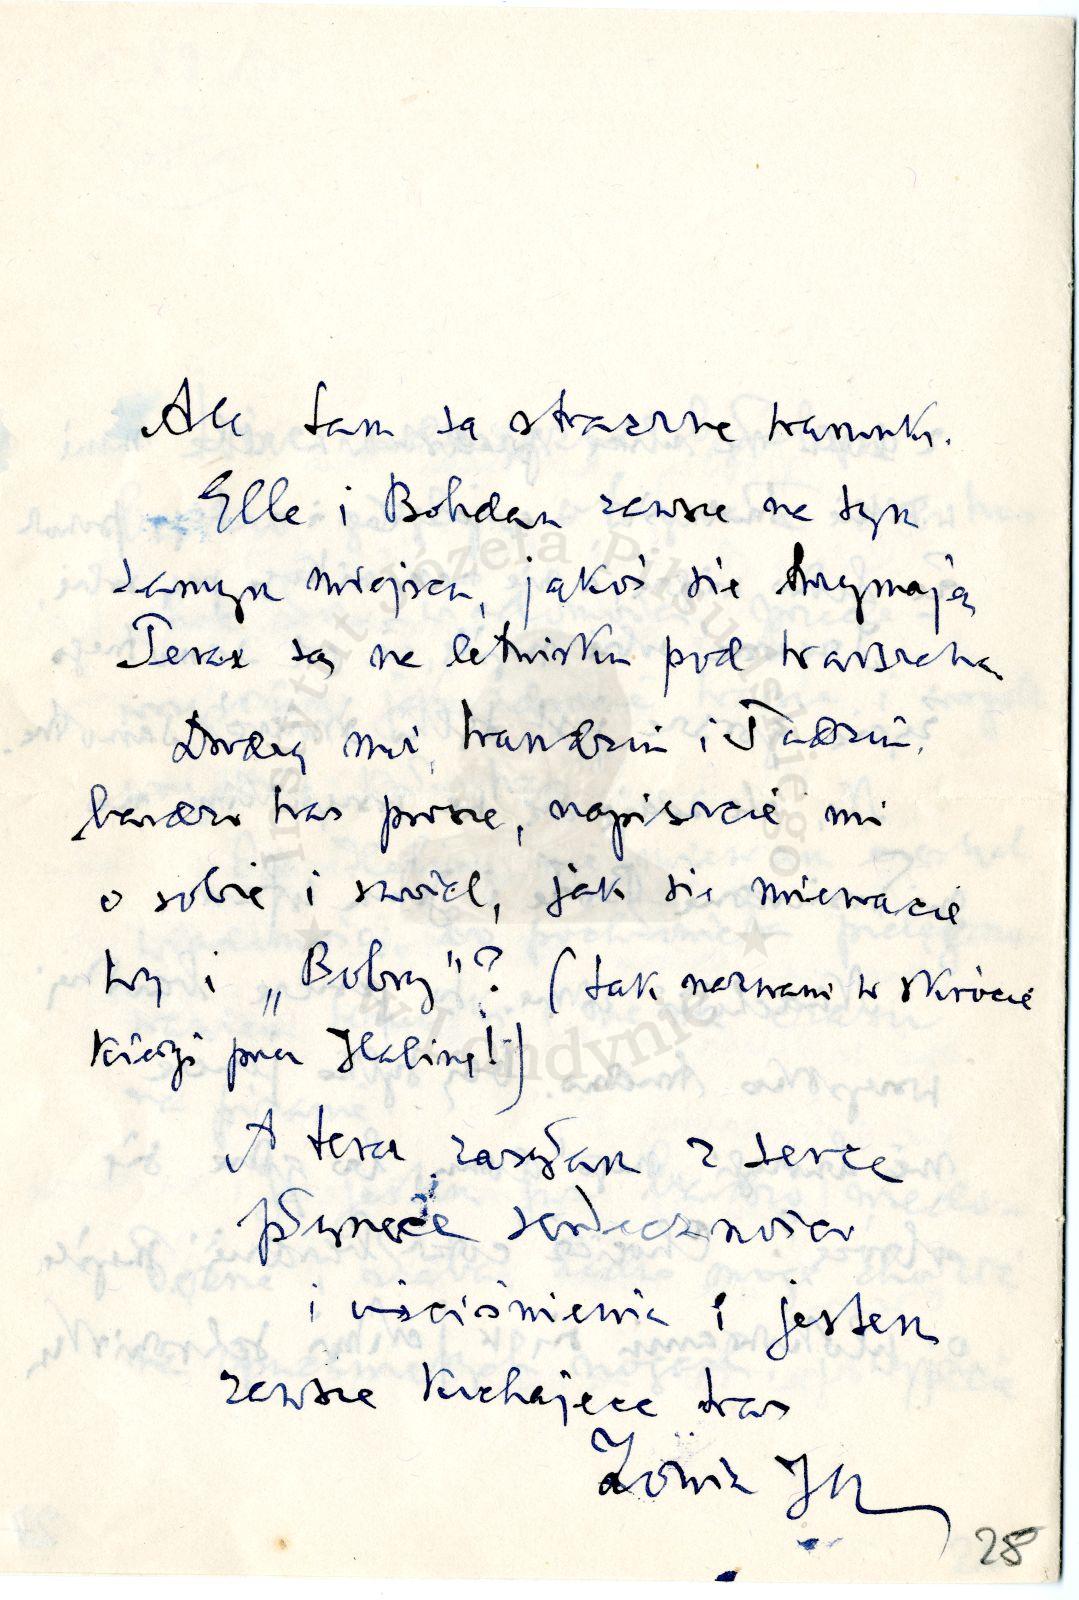 Ale tam są straszne warunki.
Ella i Bohdan zawsze na tym
samym miejscu, jakoś się trzymają
Teraz są na letnisku pod Warszawą.
Drodzy moi, Wandziu i Tadziu,
bardzo Was proszę, napiszcie mi
o sobie i swoich, jak się miewacie
Wy i „Bobry"? (tak nazwani w skrócie
kiedyś przez Halinę!)
A teraz zasyłam z serca
płynące serdeczności
i uściśnienia i jestem
zawsze kochająca Was
28
Instytut Józefa Piłsudskiego
w Londynie